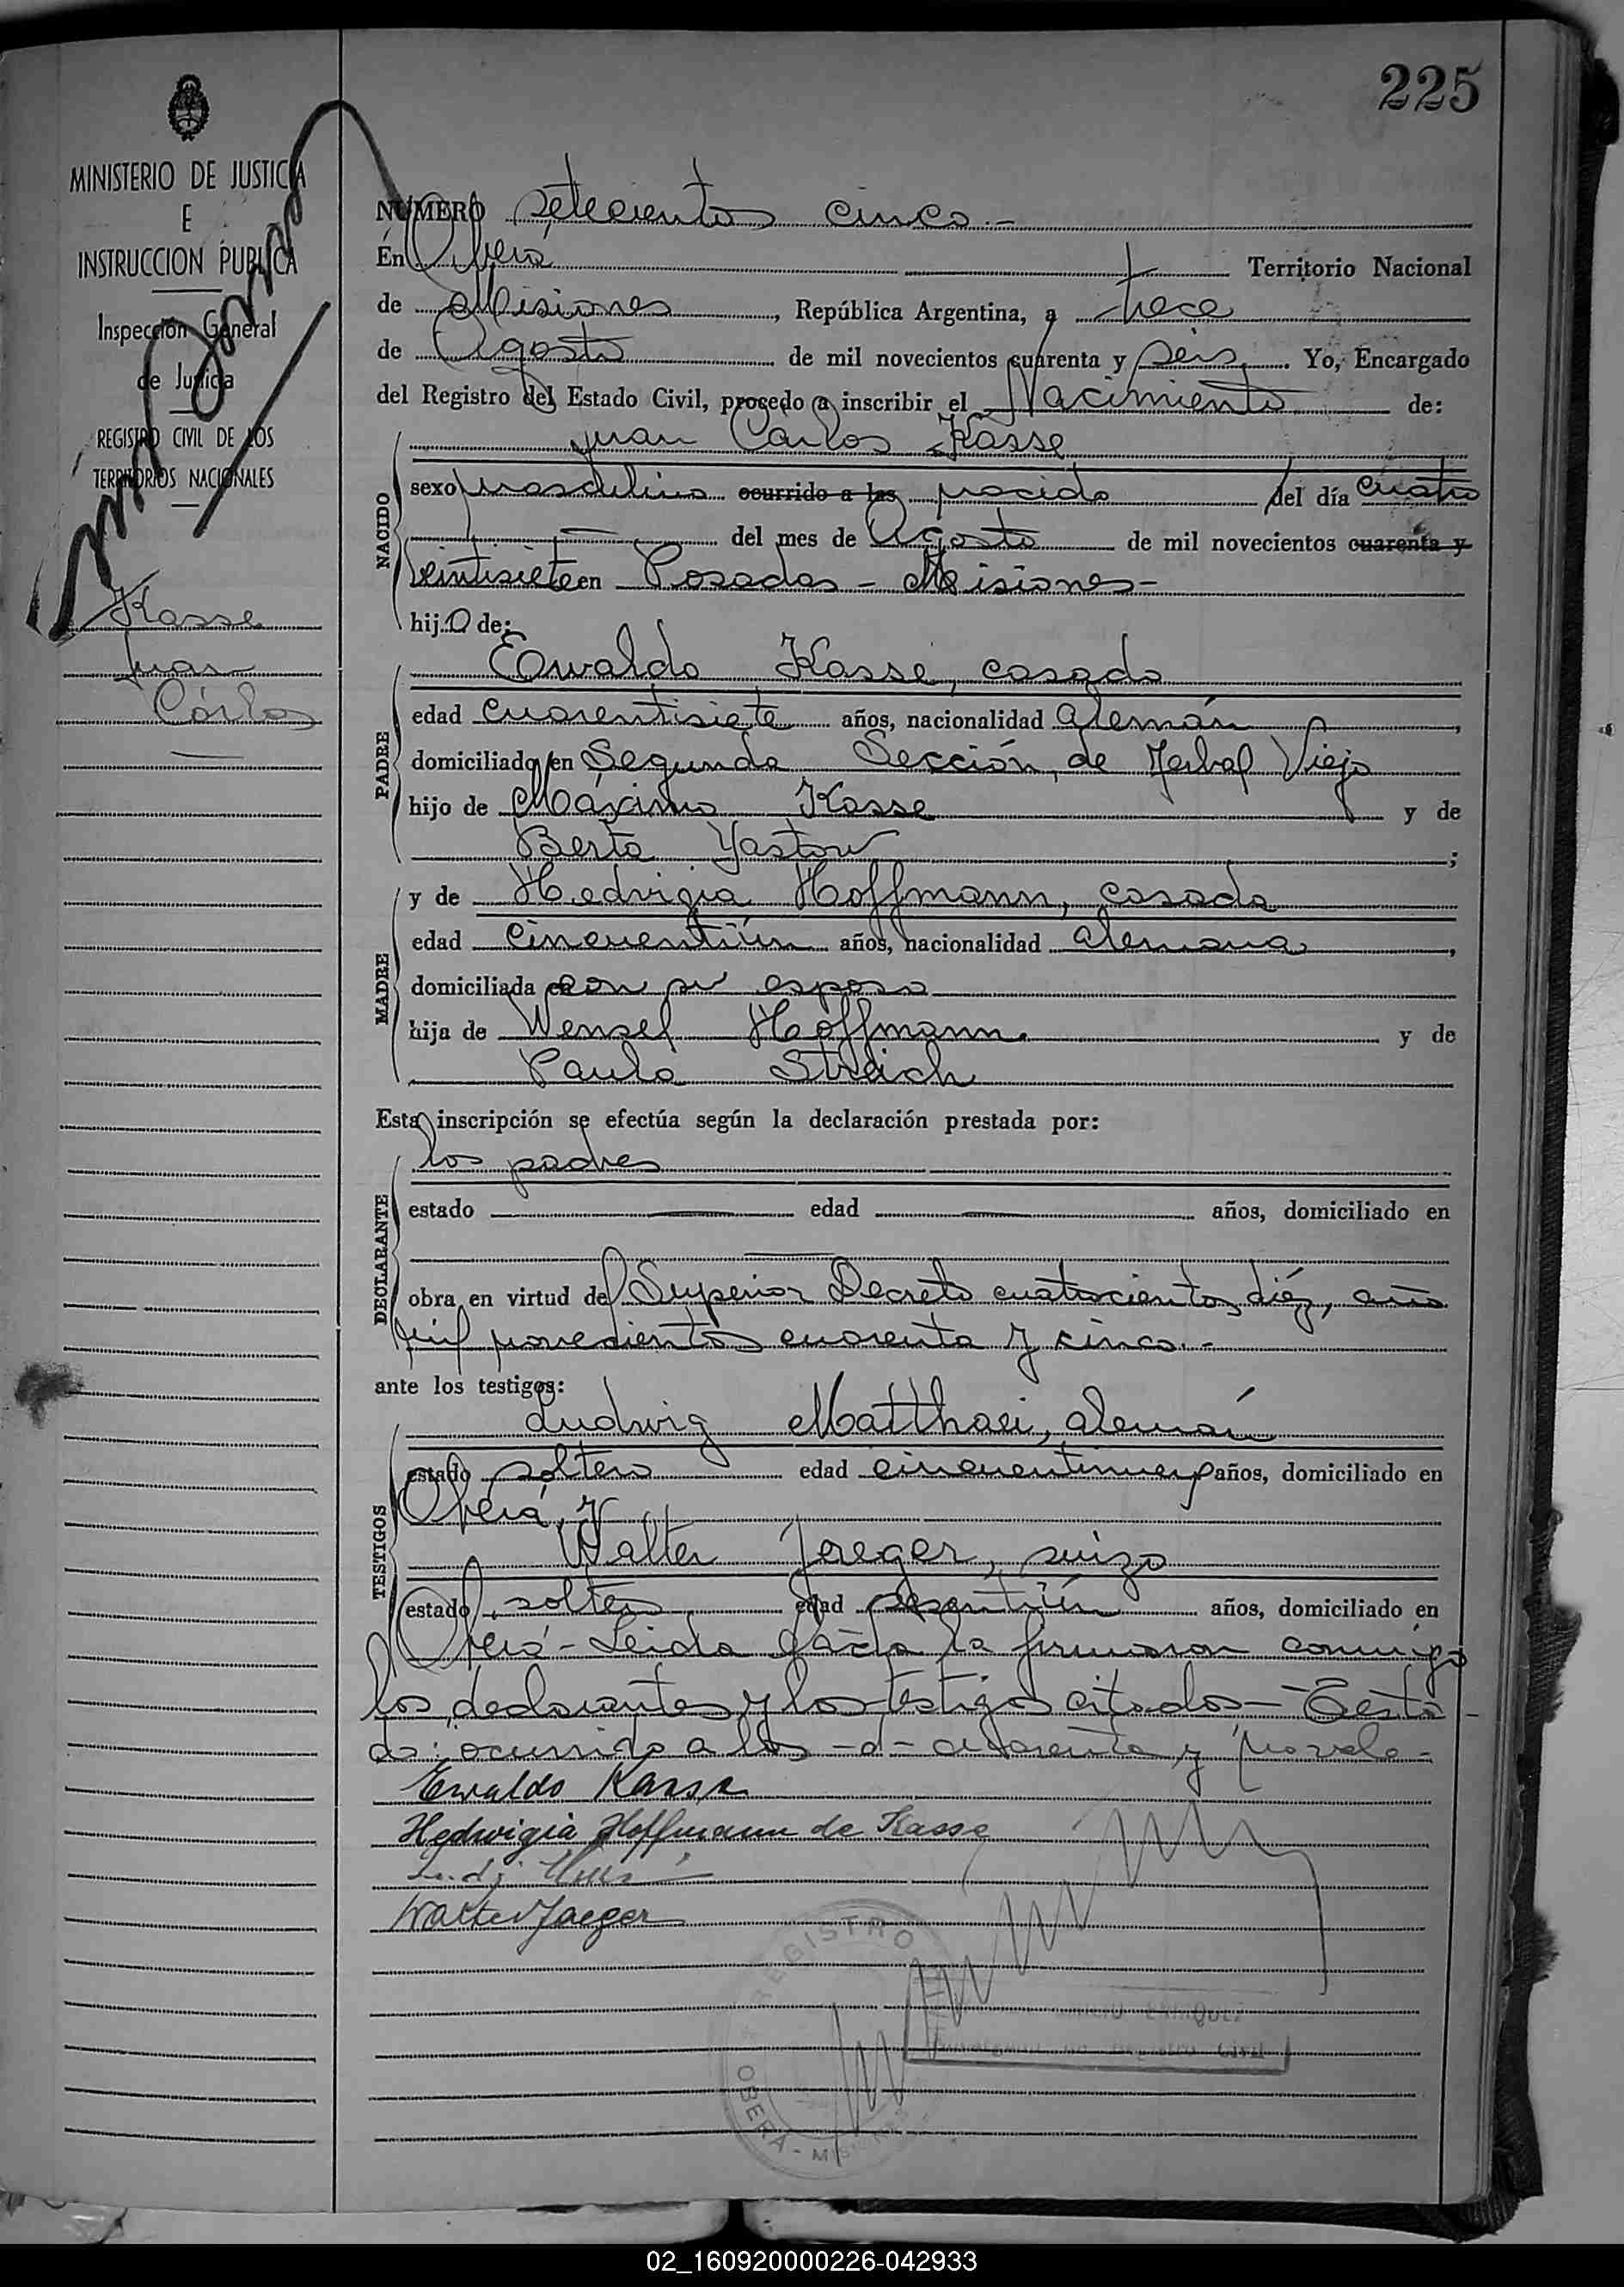 225
MINISTERIO DE JUSTICIA
E
INSTRUCCION PUBLICA
Inspección General
de Justicia
REGISTRO CIVIL DE LOS
TERRITORIOS NACIONALES
Kasse
Juan
Carlos
NUMERO setecientos cinco.-
En Oberá Territorio Nacional
de Misiones, República Argentina, a trece
de Agosto de mil novecientos cuarenta y seis. Yo, Encargado
del Registro del Estado Civil, procedo a inscribir el Nacimiento de:
NACIDO
Juan Carlos Kasse
sexo masculino ocurrido a las nacido del día cuatro
del mes de Agosto de mil novecientos cuarenta y
veintisiete en Posadas - Misiones-
hijo de:
PADRE
Ewaldo Kasse, casado
edad cuarentisiete años, nacionalidad alemán,
domiciliado en Segunda Sección, de Yerbal Viejo
hijo de Máximo Kasse y de
Berta Yastow;
MADRE
y de Hedvigia Hoffmann, casada
edad cincuentiún años, nacionalidad alemana,
domiciliada con su esposo
hija de Wensel Hoffmann. y de
Paula Streich
Esta inscripción se efectúa según la declaración prestada por:
DECLARANTE
los padres
estado edad años, domiciliado en
obra en virtud del Superior Decreto cuatrocientos diéz, año
mil novecientos cuarenta y cinco.-
ante los testigos:
TESTIGOS
Ludwig Matthaei, alemán
estado soltero edad cincuentinueve años, domiciliado en
Oberá, y
Walter Jereger, suizo
estado soltero edad sesentiún años, domiciliado en
Oberá- Leida el acta la firmaron conmigo
los declarantes y los testigos citados- Testa-
do: ocurrido a las -d- cuarenta y no vale-
Ewaldo Kasse
Hedwigia Hoffmann de Kasse
Walter Jaeger
REGISTRO
OBERA - MISIONES
ENRIQUEZ
Encargado del Registro Civil
02_160920000226-042933